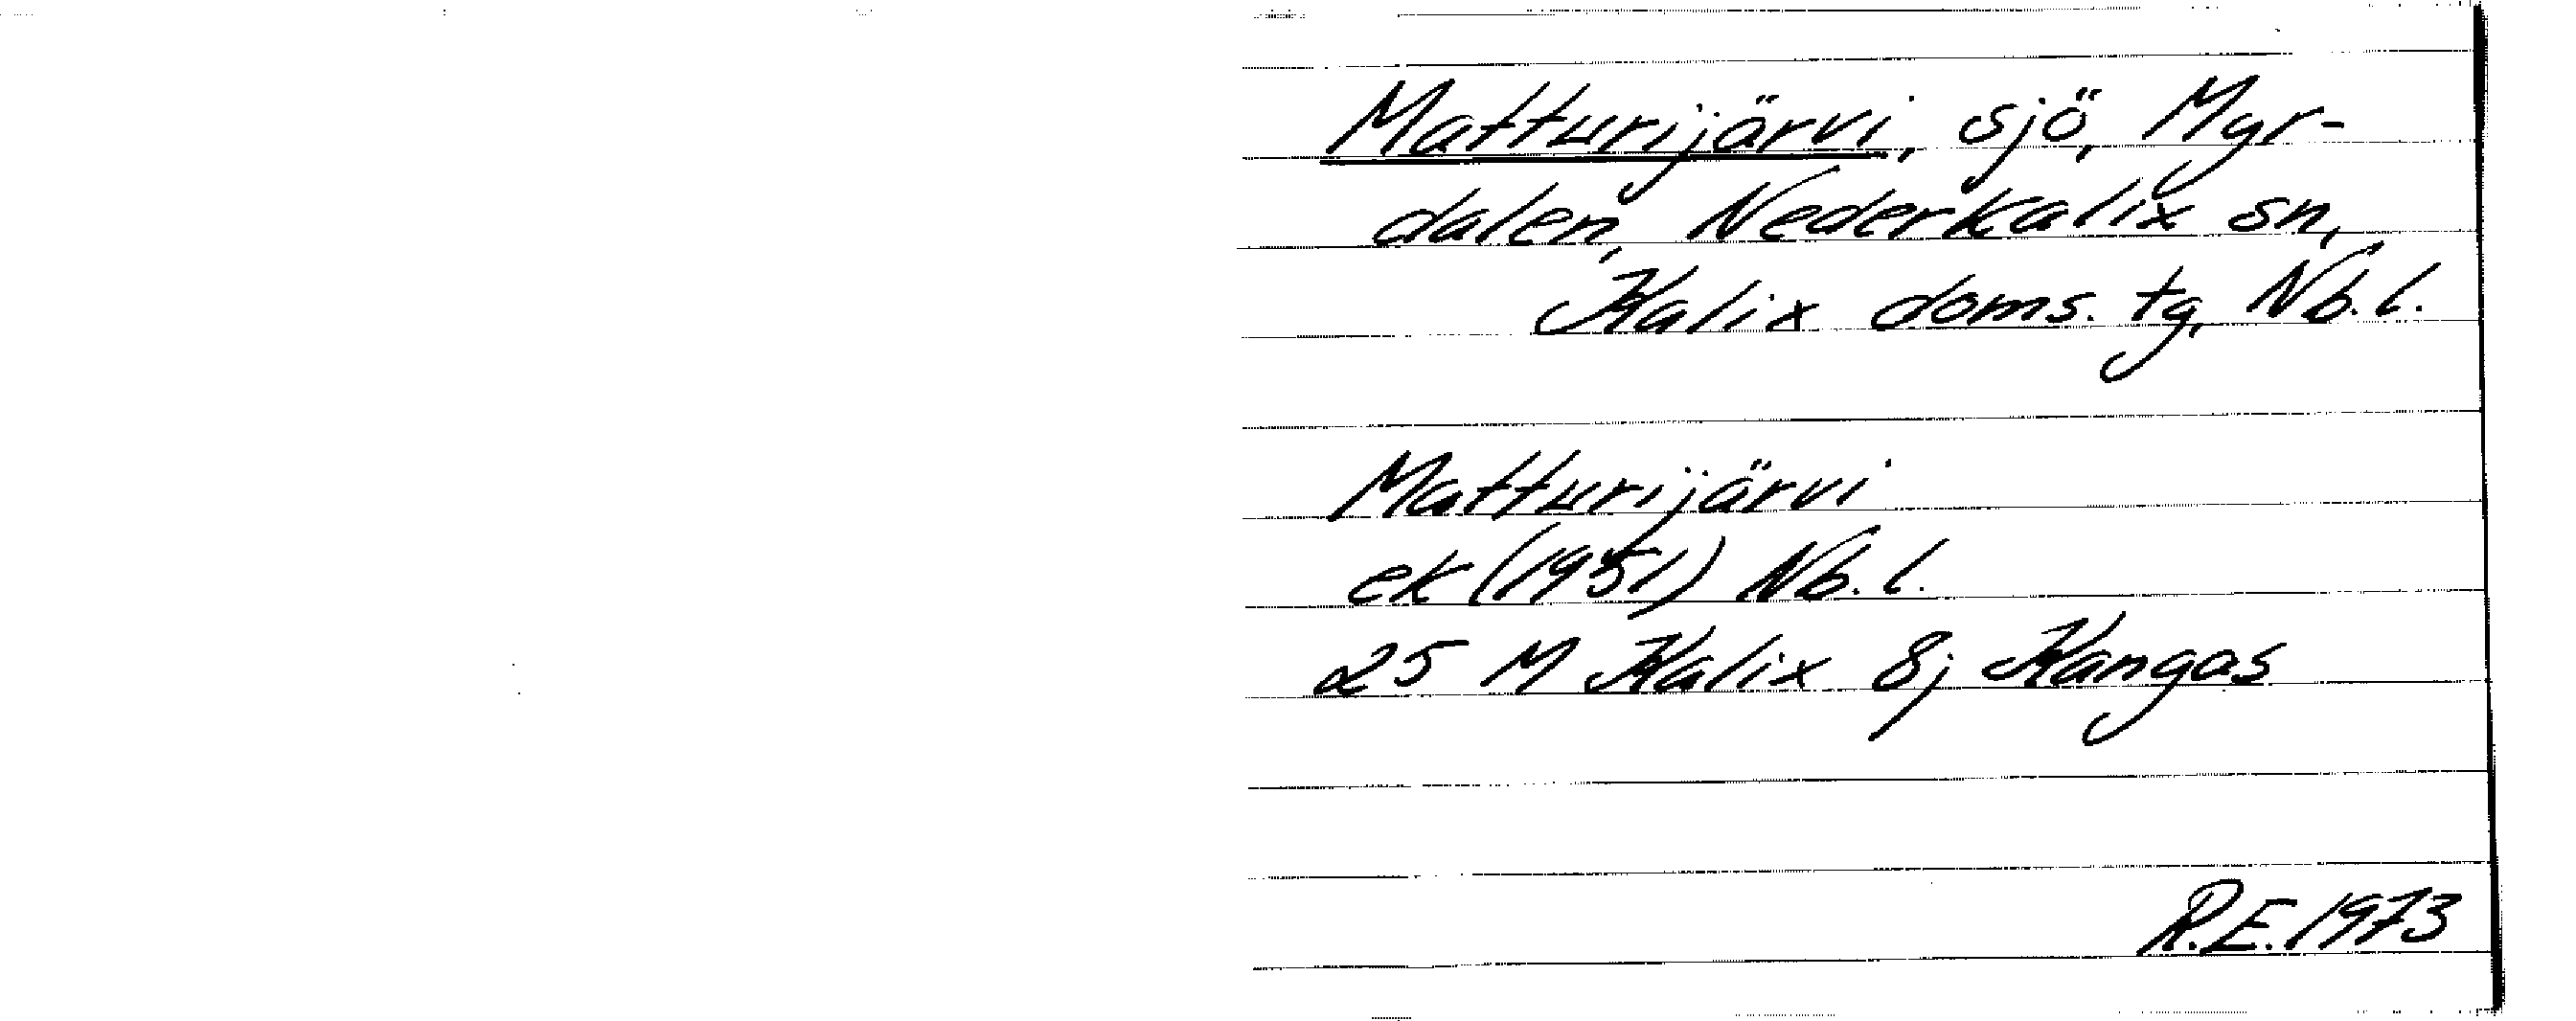 Matturijärvi, sjö, Myr-
dalen, Nederkalix sn,
Kalix doms. tg, Nb. l.
Matturijärvi
ek (1951) Nb. l.
25 M Kalix 8j Kangas
R.E. 1973